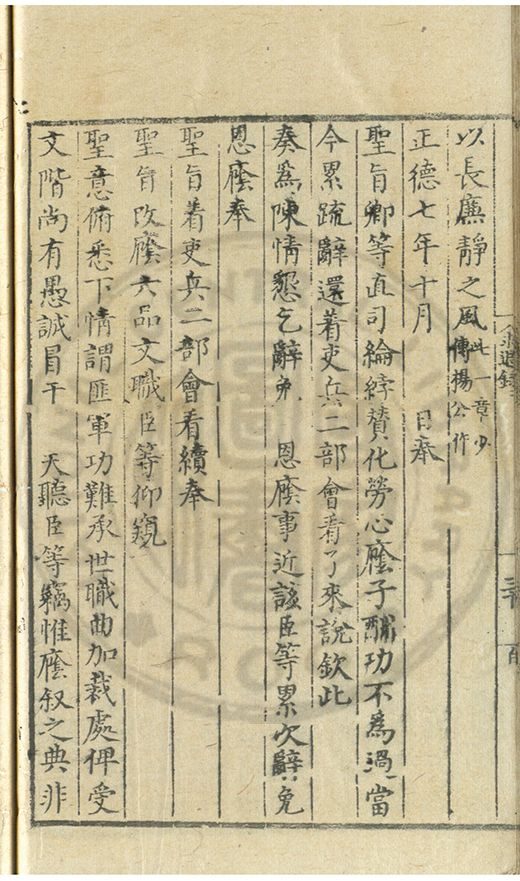 以長廉靜之風此一章少傅楊公作
正德七年十月　　日奉
聖旨卿等直司綸綍贊化勞心廕子酬功不為過當
今累疏辭還着吏兵二部會看了來說欽此
奏爲陳情懇乞辭免　恩廕事近該臣等累次辭免
恩廕奉
聖旨着吏兵二部會看續奉
聖旨改廕六品文職臣等仰窺
聖意俯悉下情謂匪軍功難承世職曲加裁處俾受
文階尚有愚誠冒干　天聽臣等竊惟廕叙之典非